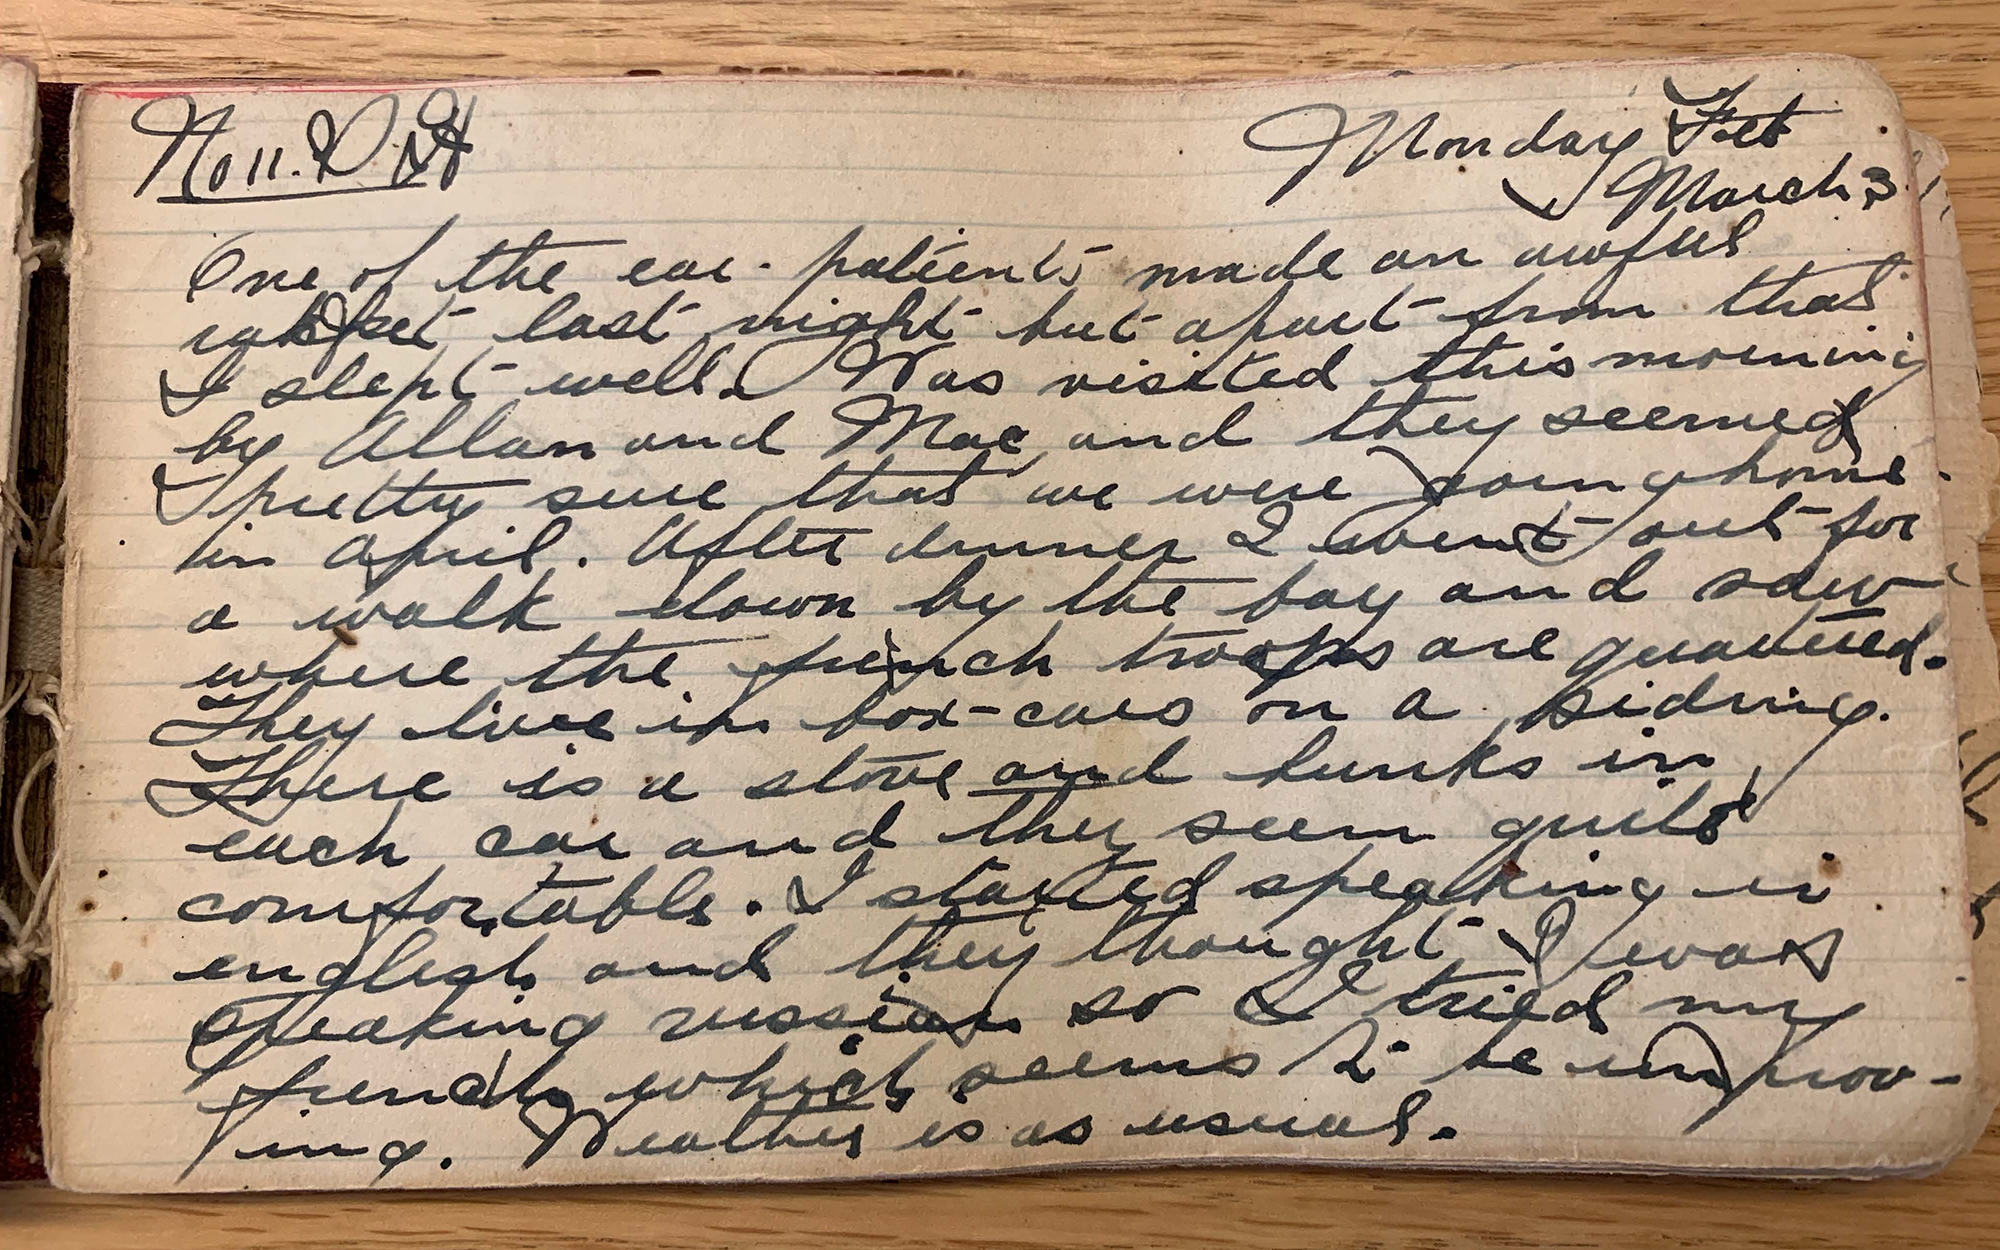 No 11. D. S. H
Monday Feb
March 3.
One of the ear-patients made an awful
racket last night but apart from that
I slept well. Was visited this morning
by Allan and Mac, and they seemed
pretty sure that we were going home
in April. After dinner I went out for
a walk down by the bay and saw
where the french troops are quartered.
They live in box-cars on a siding.
There is a stove and bunks in
each car and they seem quite
comfortable. I started speaking in
english and they thought I was
speaking russian so I tried my
french which seems to be improv-
ing. Weather is as usual.